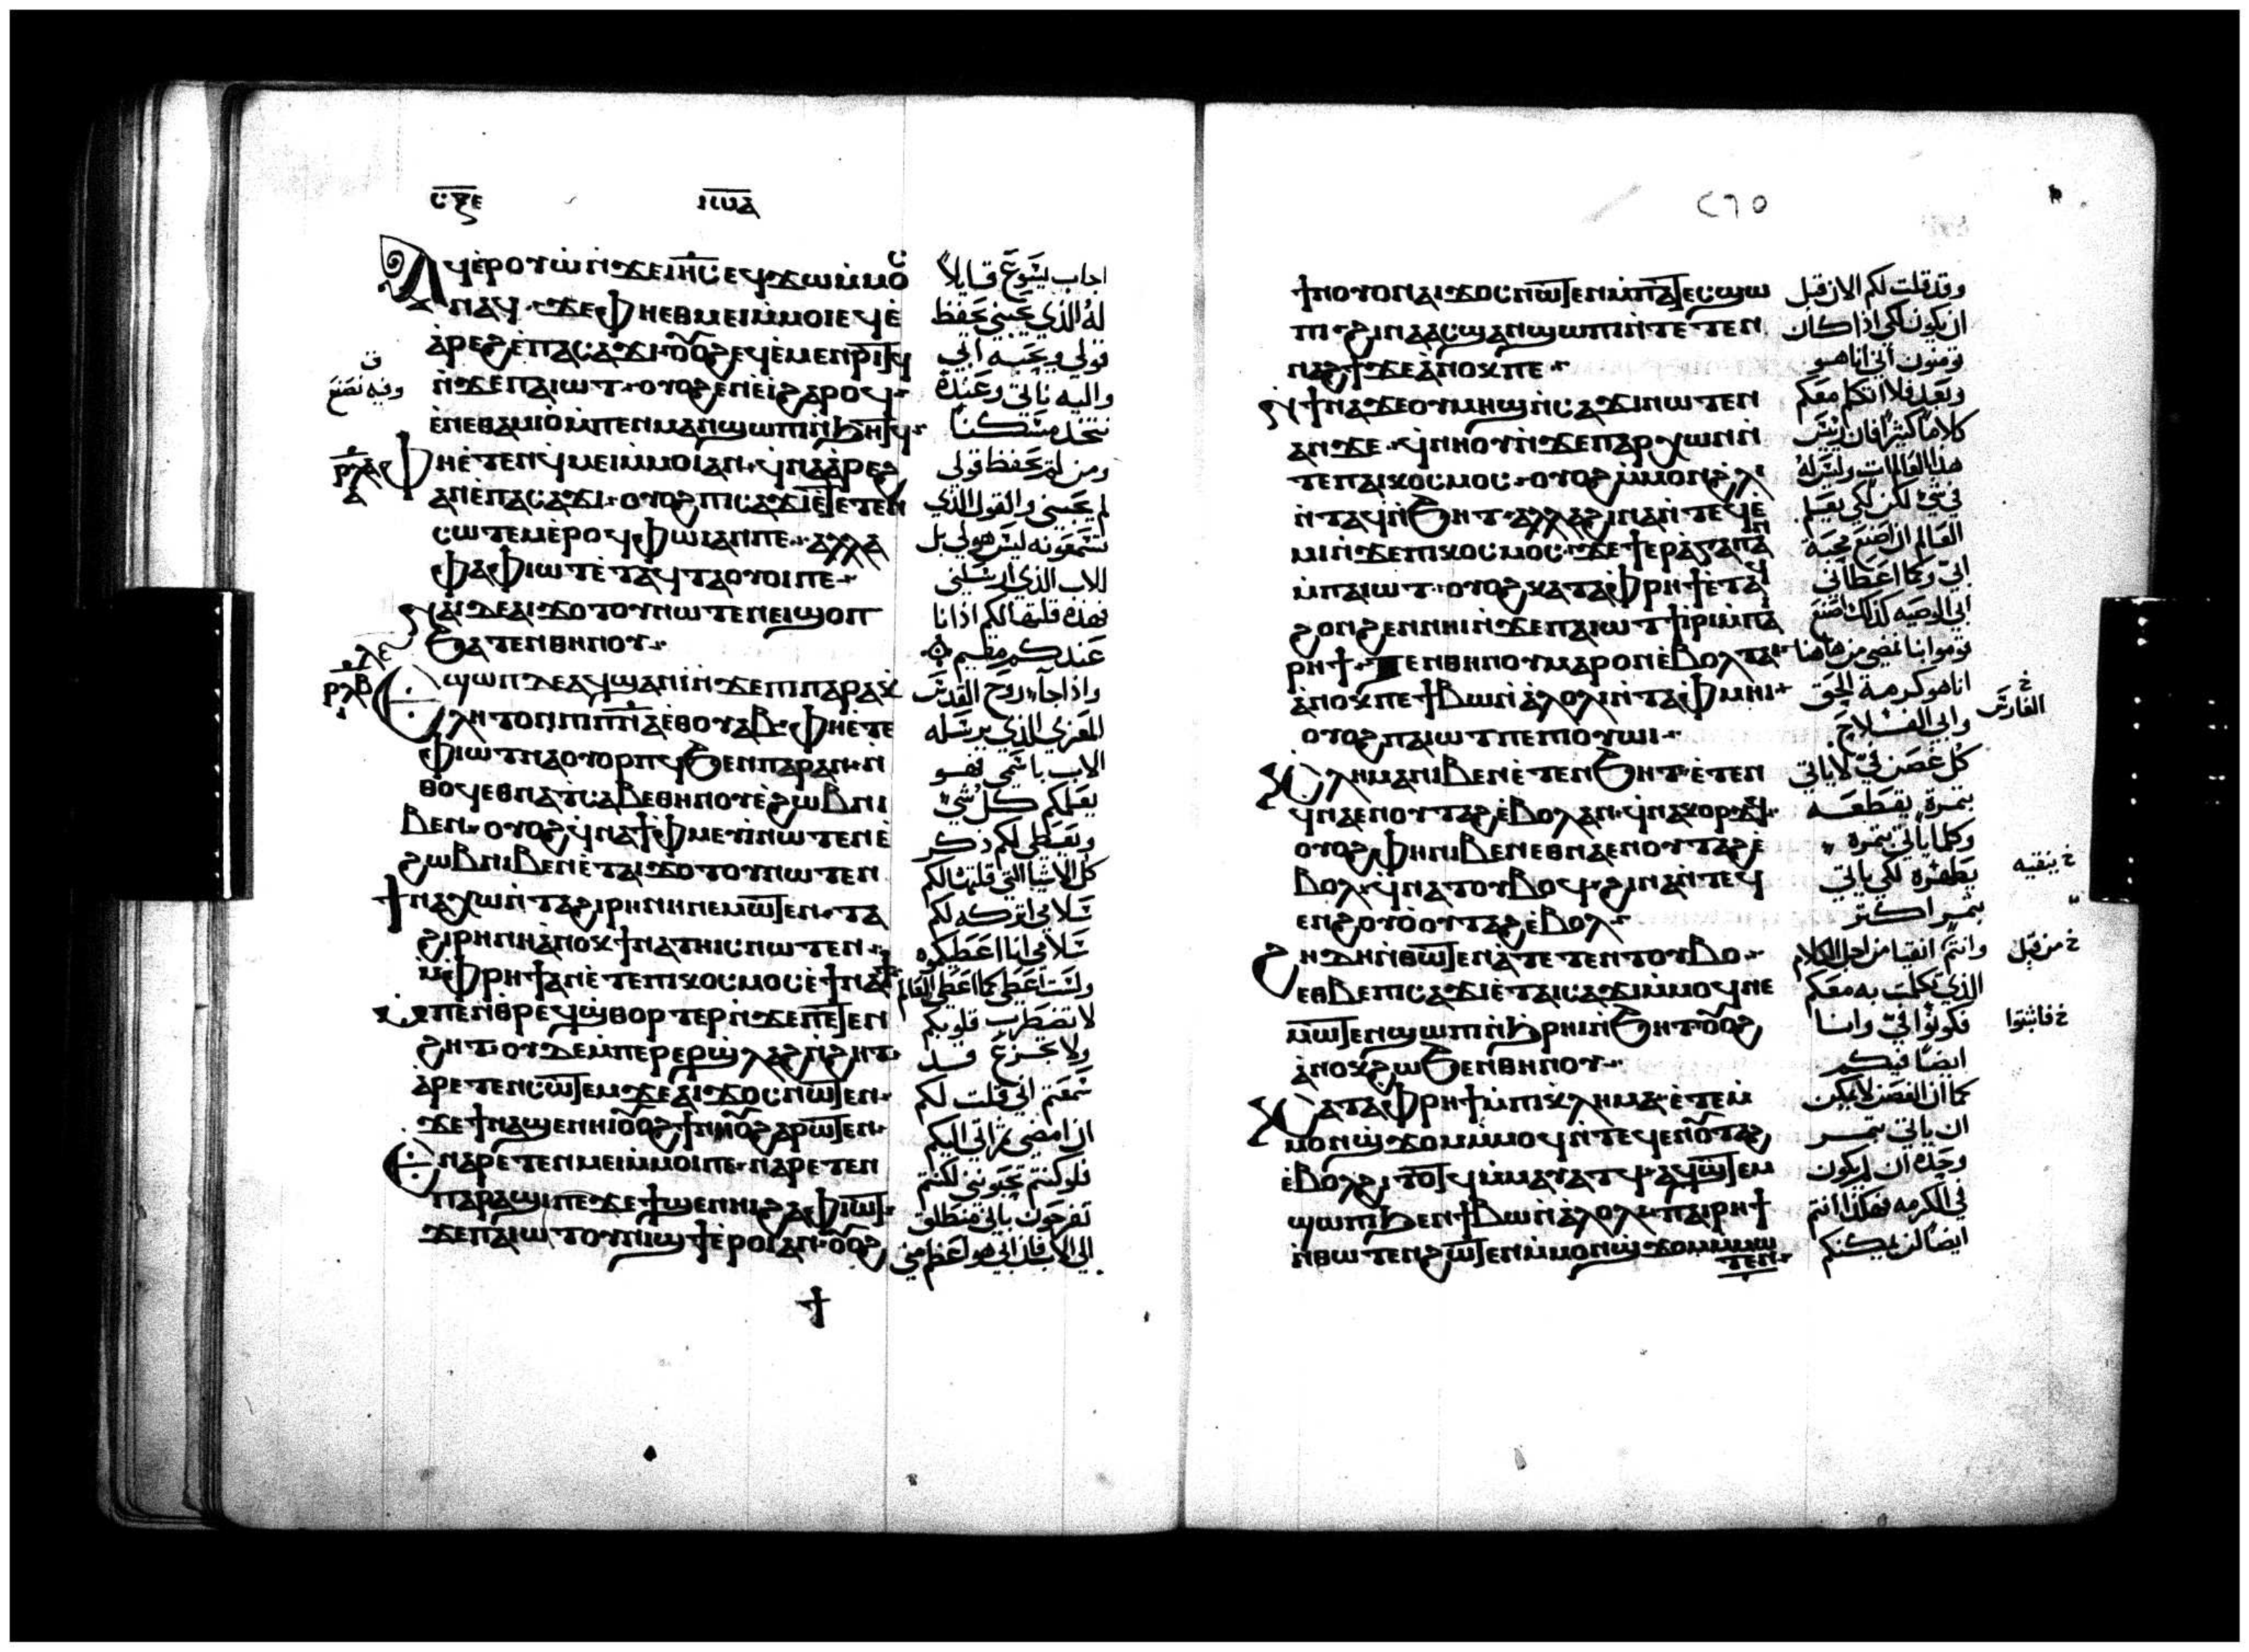 ⲥⲝⲉ
ⲓⲱⲁ
ⲁϥⲉⲣⲟⲩⲱ̀ⲛ̀ϫⲉⲓⲏ̅ⲥ̅ⲉϥϫⲱⲙ̀ⲙⲟⲥ
ⲛⲁϥ· ϫⲉⲫⲏⲉⲑⲙⲉⲓⲙ̀ⲙⲟⲓⲉϥⲉ̀
ⲁ̀ⲣⲉϩⲉ̀ⲡⲁⲥⲁϫⲓ·ⲟⲩⲟϩⲉϥⲉ̀ⲙⲉⲛⲣⲓⲧϥ
ⲛ̀ϫⲉⲡⲁⲓⲱⲧ·ⲟⲩⲟϩⲉⲛⲉ̀ⲓ̀ϩⲁⲣⲟϥ·
ⲉ̀ⲛⲉⲑⲁⲙⲓⲟ̀ⲙ̀ⲡⲉⲛⲙⲁⲛϣⲱⲡⲓⲛ̀ϧⲏⲧϥ·
ⲫⲏⲉ̀ⲧⲉⲛϥⲙⲉⲓⲙ̀ⲙⲟⲓⲁⲛ·ϥ̀ⲛⲁⲁ̀ⲣⲉϩ
ⲁⲛⲉ̀ⲡⲁⲥⲁϫⲓ·ⲟⲩⲟϩⲡⲓⲥⲁϫⲓⲉ̀ⲧⲉⲧⲉⲛ
ⲥⲱⲧⲉⲙⲉ̀ⲣⲟϥⲫⲱⲓⲁⲛⲡⲉ·ⲁⲗⲗⲁ
ⲫⲁⲫⲓⲱⲧⲉ̀ⲧⲁϥⲧⲁⲟⲩⲟⲓⲡⲉ·
ⲛⲁⲓⲇⲉⲁⲓϫⲟⲧⲟⲩⲛⲱⲧⲉⲛⲉⲓϣⲟⲡ
ϧⲁⲧⲉⲛⲑⲏⲛⲟⲩ·
ⲉϣⲱⲡⲇⲉⲁϥϣⲁⲛⲓ̀ⲛ̀ϫⲉⲡⲓⲡⲁⲣⲁⲕ
ⲗⲏⲧⲟⲛⲡⲓⲡ̅ⲛ̅ⲁ̅ⲉ̀ⲑⲟⲩⲁⲃ·ⲫⲏⲉ̀ⲧⲉ
ⲫⲓⲱⲧⲛⲁⲟⲩⲟⲣⲡϥϧⲉⲛⲡⲁⲣⲁⲛ·ⲛ̀
ⲑⲟϥⲉⲑⲛⲁⲧⲥⲁⲃⲉⲑⲏⲛⲟⲩⲉ̀ϩⲱⲃⲛⲓ
ⲃⲉⲛ·ⲟⲩⲟϩϥ̀ⲛⲁϯⲫⲙⲉⲩⲓ̀ⲛⲱⲧⲉⲛⲉ̀
ϩⲱⲃⲛⲓⲃⲉⲛⲉ̀ⲧⲁⲓϫⲟⲧⲟⲩⲛⲱⲧⲉⲛ
ϯⲛⲁⲭⲱⲛ̀ⲧⲁϩⲓⲣⲏⲛⲏⲛⲉⲙⲱⲧⲉⲛ·ⲧⲁ
ϩⲓⲣⲏⲛⲏⲁ̀ⲛⲟⲕϯⲛⲁⲧⲏⲓⲥⲛⲱⲧⲉⲛ·
ⲙ̀ⲫⲣⲏϯⲁⲛⲉ̀ⲧⲉⲡⲓⲕⲟⲥⲙⲟⲥⲉ̀ϯⲛⲁϯ
ⲙ̀ⲡⲉⲛⲑⲣⲉϥϣ̀ⲑⲟⲣⲧⲉⲣⲛ̀ϫⲉⲡⲉⲧⲉⲛ
ϩⲏⲧ·ⲟⲩⲇⲉⲙ̀ⲡⲉⲣⲉⲣϣ̀ⲗⲁϩⲛ̀ϩⲏⲧ·
ⲁ̀ⲣⲉⲧⲉⲛⲥⲱⲧⲉⲙϫⲉⲁⲓϫⲟⲥⲛⲱⲧⲉⲛ·
ϫⲉϯⲛⲁϣⲉⲛⲏⲓⲟⲩⲟϩϯⲛⲏⲟⲩϩⲁⲣⲱⲧⲉⲛ·
ⲉⲛⲁⲣⲉⲧⲉⲛⲙⲉⲓⲙ̀ⲙⲟⲓⲡⲉ·ⲛⲁⲣⲉⲧⲉⲛ
ⲡⲁⲣⲁϣⲓⲡⲉϫⲉϯϣⲉⲛⲏⲓϩⲁⲫⲓⲱⲧ·
ϫⲉⲡⲁⲓⲱⲧⲟⲩⲛⲓϣϯⲉ̀ⲣⲟⲓⲁⲛ·ⲟⲩⲟϩ
ⲣⲗⲁ
ⲣⲗⲃ
وفيه نصنع
اجاب يسوع قايلاً
له الذي يحبني يحفظ
قولي ويحبه ابي
واليه ناتي وعنده
نتخذ مسكناً
ومن لم يحفظ قولي
لم يحبني والقول الذي
تسمعونه ليس هو لي بل
للاب الذي ارسلني
فهذه قلتها لكم اذ انا
عندكم مقيم
واذا جاء روح القدس
المعزي الذي يرسله
الاب باسمي فهو
يعلمكم كل شي
ويعطي لكم ذكر
كل الاشيا التي قلتها لكم
سلامي اتركه لكم
سلامي انا اعطيكوه
ولست اعطي كما اعطي العالم
لا تضطرب قلوبكم
ولا تجزع قد
سمعتم اني قلت لكم
ان امضي ثم اتي اليكم
فلو كنتم تحبوني لكنتم
تفرحون باني منطلق
الي الاب فان ابي هو اعظم مني
ϯ
٢٦٥
ϯⲛⲟⲩⲟⲛⲁⲓϫⲟⲥⲛⲱⲧⲉⲛⲙ̀ⲡⲁⲧⲉⲥϣⲱ
ⲡⲓ·ϩⲓⲛⲁⲁⲥϣⲁⲛϣⲱⲡⲓⲛ̀ⲧⲉⲧⲉⲛ
ⲛⲁϩϯϫⲉⲁ̀ⲛⲟⲕⲡⲉ·
ϯⲛⲁϫⲉⲟⲩⲙⲏϣⲛ̀ⲥⲁϫⲓⲛⲱⲧⲉⲛ
ⲁⲛϫⲉ·ϥ̀ⲛⲏⲟⲩⲛ̀ϫⲉⲡⲁⲣⲭⲱⲛⲛ̀
ⲧⲉⲡⲁⲓⲕⲟⲥⲙⲟⲥ·ⲟⲩⲟϩⲙ̀ⲙⲟⲛϩ̀ⲗⲓ
ⲛ̀ⲧⲁϥⲛ̀ϧⲏⲧ·ⲁⲗⲗⲁϩⲓⲛⲁⲛ̀ⲧⲉϥⲉ̀
ⲙⲓⲛ̀ϫⲉⲡⲓⲕⲟⲥⲙⲟⲥ·ϫⲉϯⲉⲣⲁ̀ⲅⲁⲡⲁⲛ
ⲙ̀ⲡⲁⲓⲱⲧ·ⲟⲩⲟϩⲕⲁⲧⲁⲫⲣⲏϯⲉ̀ⲧⲁϥ
ϩⲟⲛϩⲉⲛⲛⲏⲓⲛ̀ϫⲉⲡⲁⲓⲱⲧϯⲓⲣⲓⲙ̀ⲡⲁ
ⲣⲏϯ·ⲧⲉⲛⲑⲏⲛⲟⲩⲙⲁⲣⲟⲛⲉ̀ⲃⲟⲗⲧⲁⲓ
ⲁ̀ⲛⲟⲕⲡⲉϯⲃⲱⲛ̀ⲁ̀ⲗⲟⲗⲓⲛ̀ⲧⲁⲫⲙⲏⲓ·
ⲟⲩⲟϩⲡⲁⲓⲱⲧⲡⲉⲡⲓⲟⲩⲱⲓ·
ⲕⲗⲏⲙⲁⲛⲓⲃⲉⲛⲉ̀ⲧⲉⲛϧⲏⲧ·ⲉ̀ⲧⲉⲛ
ϥⲛⲁⲉⲛⲟⲩⲧⲁϩⲉ̀ⲃⲟⲗⲁⲛ·ϥ̀ⲛⲁⲕⲟⲣϫϥ·
ⲟⲩⲟϩⲫⲏⲛⲓⲃⲉⲛⲉⲑⲛⲁⲉⲛⲟⲩⲧⲁϩⲉ̀
ⲃⲟⲗ·ϥ̀ⲛⲁⲧⲟⲩⲃⲟϥ·ϩⲓⲛⲁⲛ̀ⲧⲉϥ
ⲉⲛϩⲟⲩⲟ̀ⲟⲩⲧⲁϩⲉ̀ⲃⲟⲗ·
ϩⲏⲇⲏⲛ̀ⲑⲱⲧⲉⲛⲁ̀ⲧⲉⲧⲉⲛⲧⲟⲩⲃⲟ·
ⲉⲑⲃⲉⲡⲓⲥⲁϫⲓⲉ̀ⲧⲁⲓⲥⲁϫⲓⲙ̀ⲙⲟϥⲛⲉ
ⲙⲱⲧⲉⲛϣⲱⲡⲓⲛ̀ϧⲣⲏⲓⲛ̀ϧⲏⲧ·ⲟⲩⲟϩ
ⲁ̀ⲛⲟⲕϩⲱϧⲉⲛⲑⲏⲛⲟⲩ·
ⲕⲁⲧⲁⲫⲣⲏϯⲙ̀ⲡⲓⲕⲗⲏⲙⲁ·ⲉ̀ⲧⲉⲙ̀
ⲙⲟⲛϣ̀ϫⲟⲙⲙ̀ⲙⲟϥⲛ̀ⲧⲉϥⲉⲛⲟⲩⲧⲁϩ
ⲉ̀ⲃⲟⲗϩⲓⲧⲟⲧϥⲙ̀ⲙⲁⲩⲁⲧϥ·ⲁϥϣⲧⲉⲙ
ϣⲱⲡⲓϧⲉⲛϯⲃⲱⲛ̀ⲁ̀ⲗⲟⲗⲓ·ⲡⲁⲓⲣⲏϯ
ⲛ̀ⲑⲱⲧⲉⲛϩⲱⲧⲉⲛⲙ̀ⲙⲟⲛϣ̀ϫⲟⲙⲙ̀ⲙⲱ
ⲧⲉⲛ·
وقد قلت لكم الان قبل
ان يكون لكي اذا كان
تومنون اني انا هو
وبعد فلا اتكلم معكم
كلاما كثيرا فان اريس
هذا العالم ات وليس له
في شي لكن لكي يعلم
العالم ان اصنع محبة
ابي وكما اعطاني
ابي الوصيه كذلك اصنع
قوموا بنا نمضي من هاهنا
انا هو كرمة الحق
وابي الفلاح
كل غصن في لا ياتي
بثمرة يقطعه
وكلما ياتي بثمره
يطهره لكي ياتي
بثمر اكثر
وانتم انقيا من اجل الكلام
الذي تكلمت به معكم
فكونوا في وانا
ايضا فيكم
كما ان الغصن لا يمكن
ان ياتي بثمر
وحده ان لم يكون
في الكرمه فهكذا انتم
ايضا لن يمكنكم
خ الغارس
خ ينقيه
خ من قبل
خ فاثبتوا